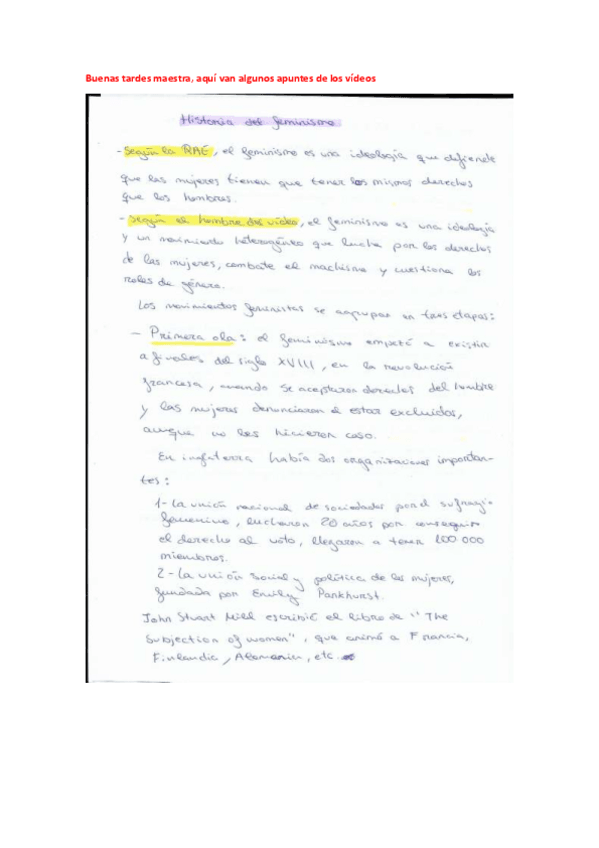 Buenas tardes maestra, aquí van algunos apuntes de los vídeos
Historia del feminismo
- Según la RAE, el feminismo es una ideología que defiende
que las mujeres tienen que tener los mismos derechos
que los hombres.
- Según el hombre del vídeo, el feminismo es una ideología
y un movimiento heterogéneo que lucha por los derechos
de las mujeres, combate el machismo y cuestiona los
roles de género.
Los movimientos feministas se agrupan en tres etapas:
- Primera ola: el feminismo empezó a existir
a finales del siglo XVIII, en la revolución
francesa, cuando se aceptaron derechos del hombre
y las mujeres denunciaron el estar excluidos,
aunque no les hicieron caso.
En inglaterra había dos organizaciones importan-
tes:
1- La unión nacional de sociedades por el sufragio
femenino, lucharon 20 años por conseguir
el derecho al voto, llegaron a tener 100.000
miembros.
2- La unión social y política de las mujeres,
fundada por Emily Pankhurst.
John Stuart Mill escribió el libro de "The
Subjection of women", que animó a Francia,
Finlandia, Alemania, etc.